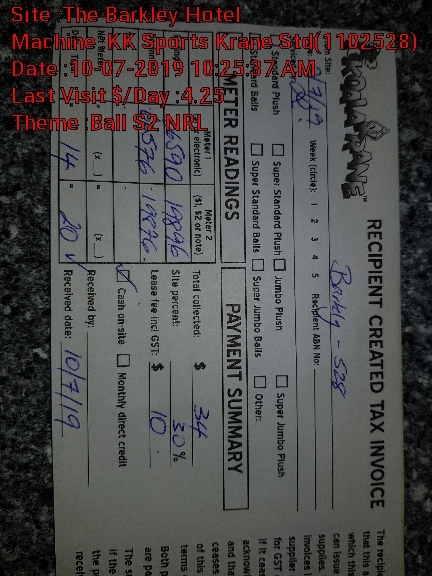 Site :The Barkley Hotel
Machine :KK Sports Krane Std(1102528)
Date :10-07-2019 10:25:57 AM
Last Visit $/Day :4.25
Theme :Ball $2 NRL
KOALA KRANE™
RECIPIENT CREATED TAX INVOICE
Barkly - 528
Week (circle): 1 2 3 4 5 Recipient ABN No:
Standard Plush Super Standard Plush Jumbo Plush Super Jumbo Plush
Standard Balls Super Standard Balls Super Jumbo Balls Other:
METER READINGS
Meter 1
(electronic)
Meter 2
($1, $2 or note)
19896
14 = 20
PAYMENT SUMMARY
Total collected: $ 34
Site percent: 30%
Lease fee incl GST: $ 10.
Cash on-site Monthly direct credit
Received by:
Received date: 10/7/19
The recipie
that this a
which this
can issue
supplies.
invoices
supplier
for GST
if it cea
acknow
and tha
ceases
of this
terms
Both p
are pa
The s
if the
the p
recei